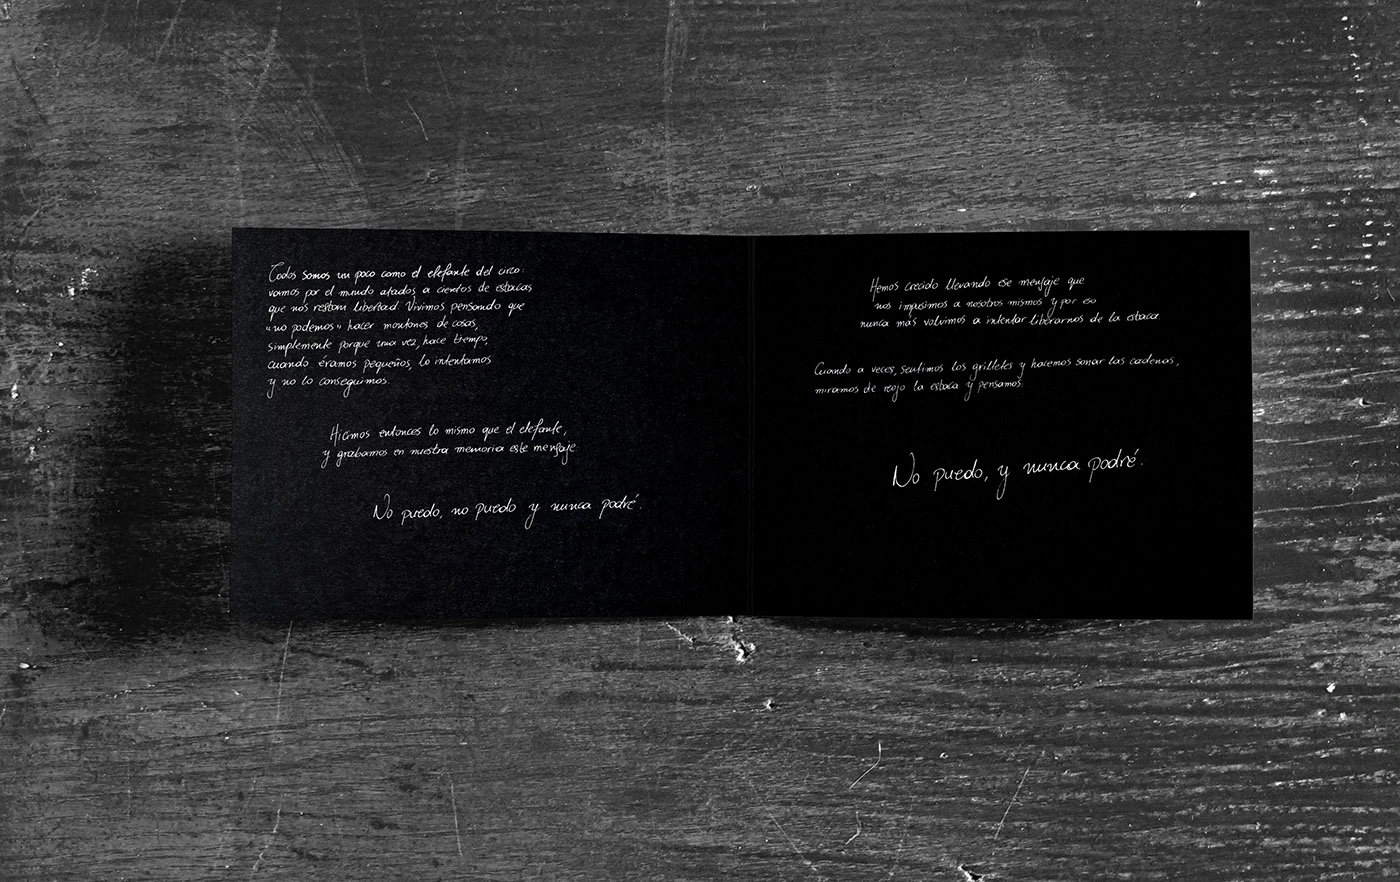 Todos somos un poco como el elefante del circo:
vamos por el mundo atados a cientos de estacas
que nos restan libertad. Vivimos pensando que
«no podemos» hacer montones de cosas,
simplemente porque una vez, hace tiempo,
cuando éramos pequeños, lo intentamos
y no lo conseguimos.
Hicimos entonces lo mismo que el elefante,
y grabamos en nuestra memoria este mensaje:
No puedo, no puedo y nunca podré.
Hemos crecido llevando ese mensaje que
nos impusimos a nosotros mismos y por eso
nunca más volvimos a intentar liberarnos de la estaca.
Cuando a veces, sentimos los grilletes y hacemos sonar las cadenas,
miramos de reojo la estaca y pensamos:
No puedo, y nunca podré.